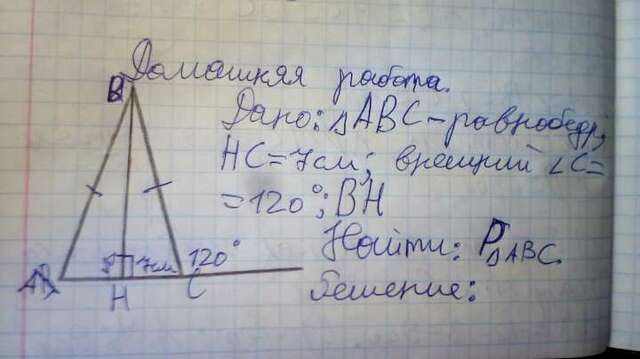 Домашняя работа.
B
Дано: △ABC – равнобедр;
HC = 7см; внешний ∠C =
= 120°; BH
Найти: P△ABC.
Решение:
7см 120°
A H C